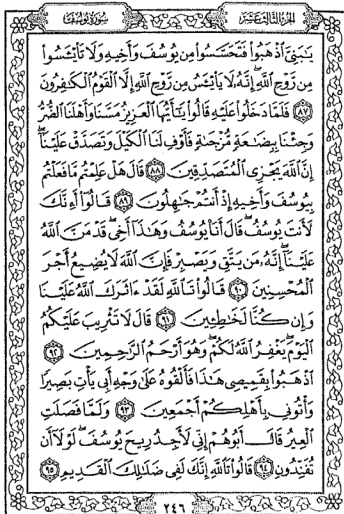 سورة يوسف
الجزء الثالث عشر
يَٰبَنِىَّ ٱذْهَبُوا۟ فَتَحَسَّسُوا۟ مِن يُوسُفَ وَأَخِيهِ وَلَا تَا۟يْـَٔسُوا۟
مِن رَّوْحِ ٱللَّهِ إِنَّهُۥ لَا يَا۟يْـَٔسُ مِن رَّوْحِ ٱللَّهِ إِلَّا ٱلْقَوْمُ ٱلْكَٰفِرُونَ
﴿٨٧﴾ فَلَمَّا دَخَلُوا۟ عَلَيْهِ قَالُوا۟ يَٰٓأَيُّهَا ٱلْعَزِيزُ مَسَّنَا وَأَهْلَنَا ٱلضُّرُّ
وَجِئْنَا بِبِضَٰعَةٍ مُّزْجَىٰةٍ فَأَوْفِ لَنَا ٱلْكَيْلَ وَتَصَدَّقْ عَلَيْنَآ
إِنَّ ٱللَّهَ يَجْزِى ٱلْمُتَصَدِّقِينَ ﴿٨٨﴾ قَالَ هَلْ عَلِمْتُم مَّا فَعَلْتُم
بِيُوسُفَ وَأَخِيهِ إِذْ أَنتُمْ جَٰهِلُونَ ﴿٨٩﴾ قَالُوٓا۟ أَءِنَّكَ
لَأَنتَ يُوسُفُ قَالَ أَنَا۠ يُوسُفُ وَهَٰذَآ أَخِى قَدْ مَنَّ ٱللَّهُ
عَلَيْنَآ إِنَّهُۥ مَن يَتَّقِ وَيَصْبِرْ فَإِنَّ ٱللَّهَ لَا يُضِيعُ أَجْرَ
ٱلْمُحْسِنِينَ ﴿٩٠﴾ قَالُوا۟ تَٱللَّهِ لَقَدْ ءَاثَرَكَ ٱللَّهُ عَلَيْنَا
وَإِن كُنَّا لَخَٰطِـِٔينَ ﴿٩١﴾ قَالَ لَا تَثْرِيبَ عَلَيْكُمُ
ٱلْيَوْمَ يَغْفِرُ ٱللَّهُ لَكُمْ وَهُوَ أَرْحَمُ ٱلرَّٰحِمِينَ ﴿٩٢﴾
ٱذْهَبُوا۟ بِقَمِيصِى هَٰذَا فَأَلْقُوهُ عَلَىٰ وَجْهِ أَبِى يَأْتِ بَصِيرًا
وَأْتُونِى بِأَهْلِكُمْ أَجْمَعِينَ ﴿٩٣﴾ وَلَمَّا فَصَلَتِ
ٱلْعِيرُ قَالَ أَبُوهُمْ إِنِّى لَأَجِدُ رِيحَ يُوسُفَ لَوْلَآ أَن
تُفَنِّدُونِ ﴿٩٤﴾ قَالُوا۟ تَٱللَّهِ إِنَّكَ لَفِى ضَلَٰلِكَ ٱلْقَدِيمِ ﴿٩٥﴾
٢٤٦